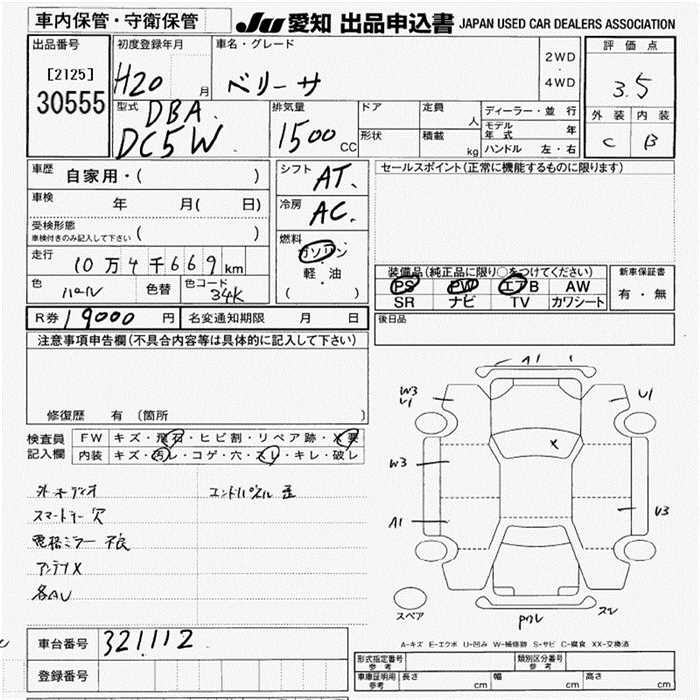 車内保管・守衛保管
JU 愛知 出品申込書 JAPAN USED CAR DEALERS ASSOCIATION
出品番号
[2125]
30555
初度登録年月
H20 月
車名・グレード
ベリーサ
2WD
・
4WD
評価点
3.5
外装 内装
C B
型式 DBA
DC5W
排気量
1500 CC
ドア
形状
定員 人
積載 kg
ディーラー・並行
モデル年式 年
ハンドル 左・右
車歴 自家用・( )
車検 年 月( 日)
受検形態
車検付きのみ記入して下さい ( )
走行
10万4千669km
色 パール 色替 色コード 34K
シフト AT.
冷房 AC.
燃料
ガソリン
・
軽・油
( )
セールスポイント(正常に機能するものに限ります)
装備品(純正品に限り○をつけてください)
PS PW エアB AW
SR ナビ TV カワシート
新車保証書
有・無
R券 19000 円 名変通知期限 月 日
後日品
注意事項申告欄(不具合内容等は具体的に記入して下さい)
修復歴 有 (箇所 )
検査員
記入欄
FW キズ・飛石・ヒビ割・リペア跡・X要
内装 キズ・汚レ・コゲ・穴・スレ・キレ・破レ
外オーディオ エンドパネル歪
スマートキー欠
電格ミラー不良
アンテナX
各AU
A1
W3
U1
U1
X
W3
A1
U3
スペア
スレ
A-キズ E-エクボ U-凹み W-補修跡 S-サビ C-腐食 XX-交換済
車台番号 321112
登録番号
形式指定番号 参考 類別区分番号 参考
車庫証明用 参考 長さ cm 幅 cm 高さ cm